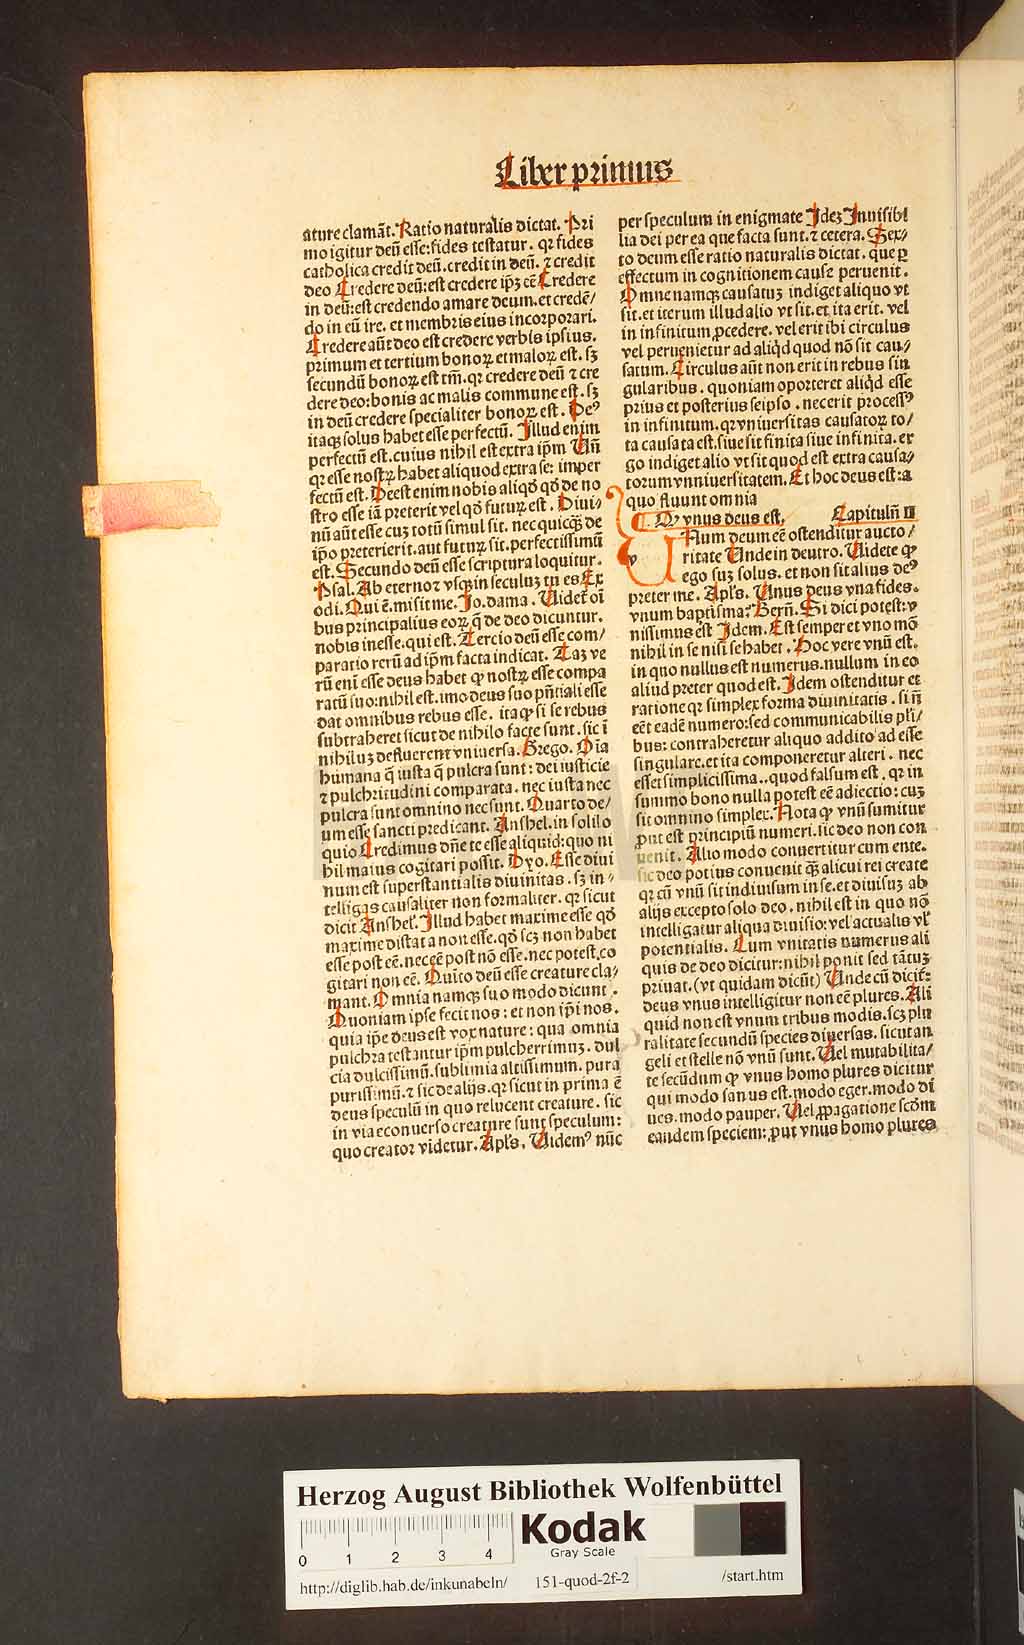 Liber primus
ature clamāt. Ratio naturalis dictat. Pri
mo igitur deū esse: fides testatur. qꝛ fides
catholica credit deū. credit in deū. ⁊ credit
deo Credere deū: est credere ip̄ꝫ cē Credere
in deū: est credendo amare deum. et credē/
do in eū ire. et membris eius incorporari.
Credere aūt deo est credere verbis ipsius.
primum et tertium bonoꝝ et maloꝝ est. sꝫ
secundū bonoꝝ est tm̄. qꝛ credere deū ⁊ cre
dere deo: bonis ac malis commune est. sꝫ
in deū credere specialiter bonoꝝ est. Deꝰ
itaqꝫ solus habet esse perfectū. Illud enim
perfectū est. cuius nihil est extra ip̄m Un̄
qꝛ esse nostꝝ habet aliquod extra se: imper
fectū est. Deest enim nobis aliqd̄ qd̄ de no
stro esse iā preterit vel qd̄ futuꝝ est. Diui-
nū aūt esse cuꝫ totū simul sit. nec quicqꝫ de
ip̄o preterierit. aut futuꝝ sit. perfectissimū
est. Secundo deū esse scriptura loquitur.
Psal. Ab eterno ⁊ vsqꝫ in seculuꝫ tu es Ex
odi. Qui ē. misit me. Jo. dama. Videt̄ oī
bus principalius eoꝝ q̄ de deo dicuntur.
nobis inesse. qui est. Tercio deū esse com/
paratio rerū ad ip̄m facta indicat. Taꝫ ve
rū eni esse deus habet ꝙ nostꝝ esse compa
ratū suo: nihil est. imo deus suo pn̄tiali esse
dat omnibus rebus esse. ita ꝙ si se rebus
subtraheret sicut de nihilo facte sunt. sic ī
nihiluꝫ defluerent vniuersa. Grego. Oia
humana q̄ iusta q̄ pulcra sunt: dei iusticie
⁊ pulchritudini comparata. nec iusta nec
pulcra sunt omnino nec sunt. Quarto de/
um esse sancti predicant. Anshel. in solilo
quio Credimus dn̄e te esse aliquid: quo ni
hil maius cogitari possit. Dyo. Esse diui
num est superstantialis diuinitas. sꝫ in-
telligas causaliter non formaliter. qꝛ sicut
dicit Anshel'. Illud habet maxime esse qd̄
maxime distat a non esse. qd̄ scꝫ non habet
esse post eē. nec eē post nō esse. nec potest co
gitari non eē. Quito deū esse creature cla-
mant. Omnia namqꝫ suo modo dicunt.
Quoniam ipse fecit nos: et non ip̄i nos.
quia ip̄e deus est vox nature: qua omnia
pulchra testantur ip̄m pulcherrimuꝫ. dul
cia dulcissimū. sublimia altissimum. pura
purissimū. ⁊ sic de alijs. qꝛ sicut in prima ē
deus speculū in quo relucent creature. sic
in via econuerso creature sunt speculum:
quo creator videtur. Apl's. Videmꝰ nūc
per speculum in enigmate Ideꝫ Inuisibi
lia dei per ea que facta sunt. ⁊ cetera. Sex-
to deum esse ratio naturalis dictat. que ꝑ
effectum in cognitionem cause peruenit.
Omne namqꝫ causatuꝫ indiget aliquo vt
sit. et iterum illud alio vt sit. et ita erit. vel
in infinitum ꝓcedere. vel erit ibi circulus
vel peruenietur ad aliqd quod nō sit cau-
satum. Circulus aūt non erit in rebus sin
gularibus. quoniam oporteret aliqd esse
prius et posterius seipso. nec erit processꝰ
in infinitum. qꝛ vniuersitas causatoꝝ to/
ta causata est. siue sit finita siue infinita. er
go indiget alio vt sit quod est extra causa-
torum vnniuersitatem. Et hoc deus est: a
quo fluunt omnia
¶ Qꝛ vnus deus est. Capitulū II
Unum deum eē ostenditur aucto/
ritate Unde in deutro. Videte ꝙ
ego suꝫ solus. et non sit alius deꝰ
preter me. Apl's. Unus deus vna fides.
vnum baptisma? Bern̄. Si dici potest: v
nissimus est Idem. Est semper et vno mō
nihil in se nisi se habet. Hoc vere vnū est.
in quo nullus est numerus. nullum in eo
aliud preter quod est. Idem ostenditur et
ratione qꝛ simplex forma diuinitatis. si n̄
eēt eadē numero: sed communicabilis pl'i/
bus: contraheretur aliquo addito ad esse
singulare. et ita componeretur alteri. nec
esset simplicissima.. quod falsum est. qꝛ in
summo bono nulla potest eē adiectio: cuꝫ
sit omnino simplex. Nota ꝙ vnū sumitur
ꝓut est principiū numeri. sic deo non con
uenit. Alio modo conuertitur cum ente.
sic deo potius conuenit qꝫ alicui rei create
qꝛ cū vnū sit indiuisum in se. et diuisuꝫ ab
alijs excepto solo deo. nihil est in quo nō
intelligatur aliqua diuisio: vel actualis vl'
potentialis. Cum vnitatis numerus ali
quis de deo dicitur: nihil ponit sed tātuꝫ
priuat. (vt quidam dicūt) Unde cū dicit̄:
deus vnus intelligitur non eē plures. Ali
quid non est vnum tribus modis. scꝫ plu
ralitate secundū species diuersas. sicut an
geli et stelle nō vnū sunt. Vel mutabilita/
te secūdum ꝙ vnus homo plures dicitur
qui modo sanus est. modo eger. modo di
ues. modo pauper. Vel ꝓpagatione scd̄m
eandem speciem: ꝓut vnus homo plures
Herzog August Bibliothek Wolfenbüttel
0 1 2 3 4
Kodak
Gray Scale
http://diglib.hab.de/inkunabeln/ 151-quod-2f-2 /start.htm